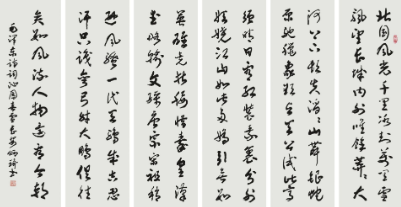 北国风光千里冰封万里雪
飘望长城内外惟余莽莽大
河上下顿失滔滔山舞银蛇
原驰蜡象欲与天公试比高
须晴日看红装素裹分外
妖娆江山如此多娇引无数
英雄竞折腰惜秦皇汉
武略输文采唐宗宋祖稍
逊风骚一代天骄成吉思
汗只识弯弓射大雕俱往
矣数风流人物还看今朝
毛泽东诗词沁园春雪